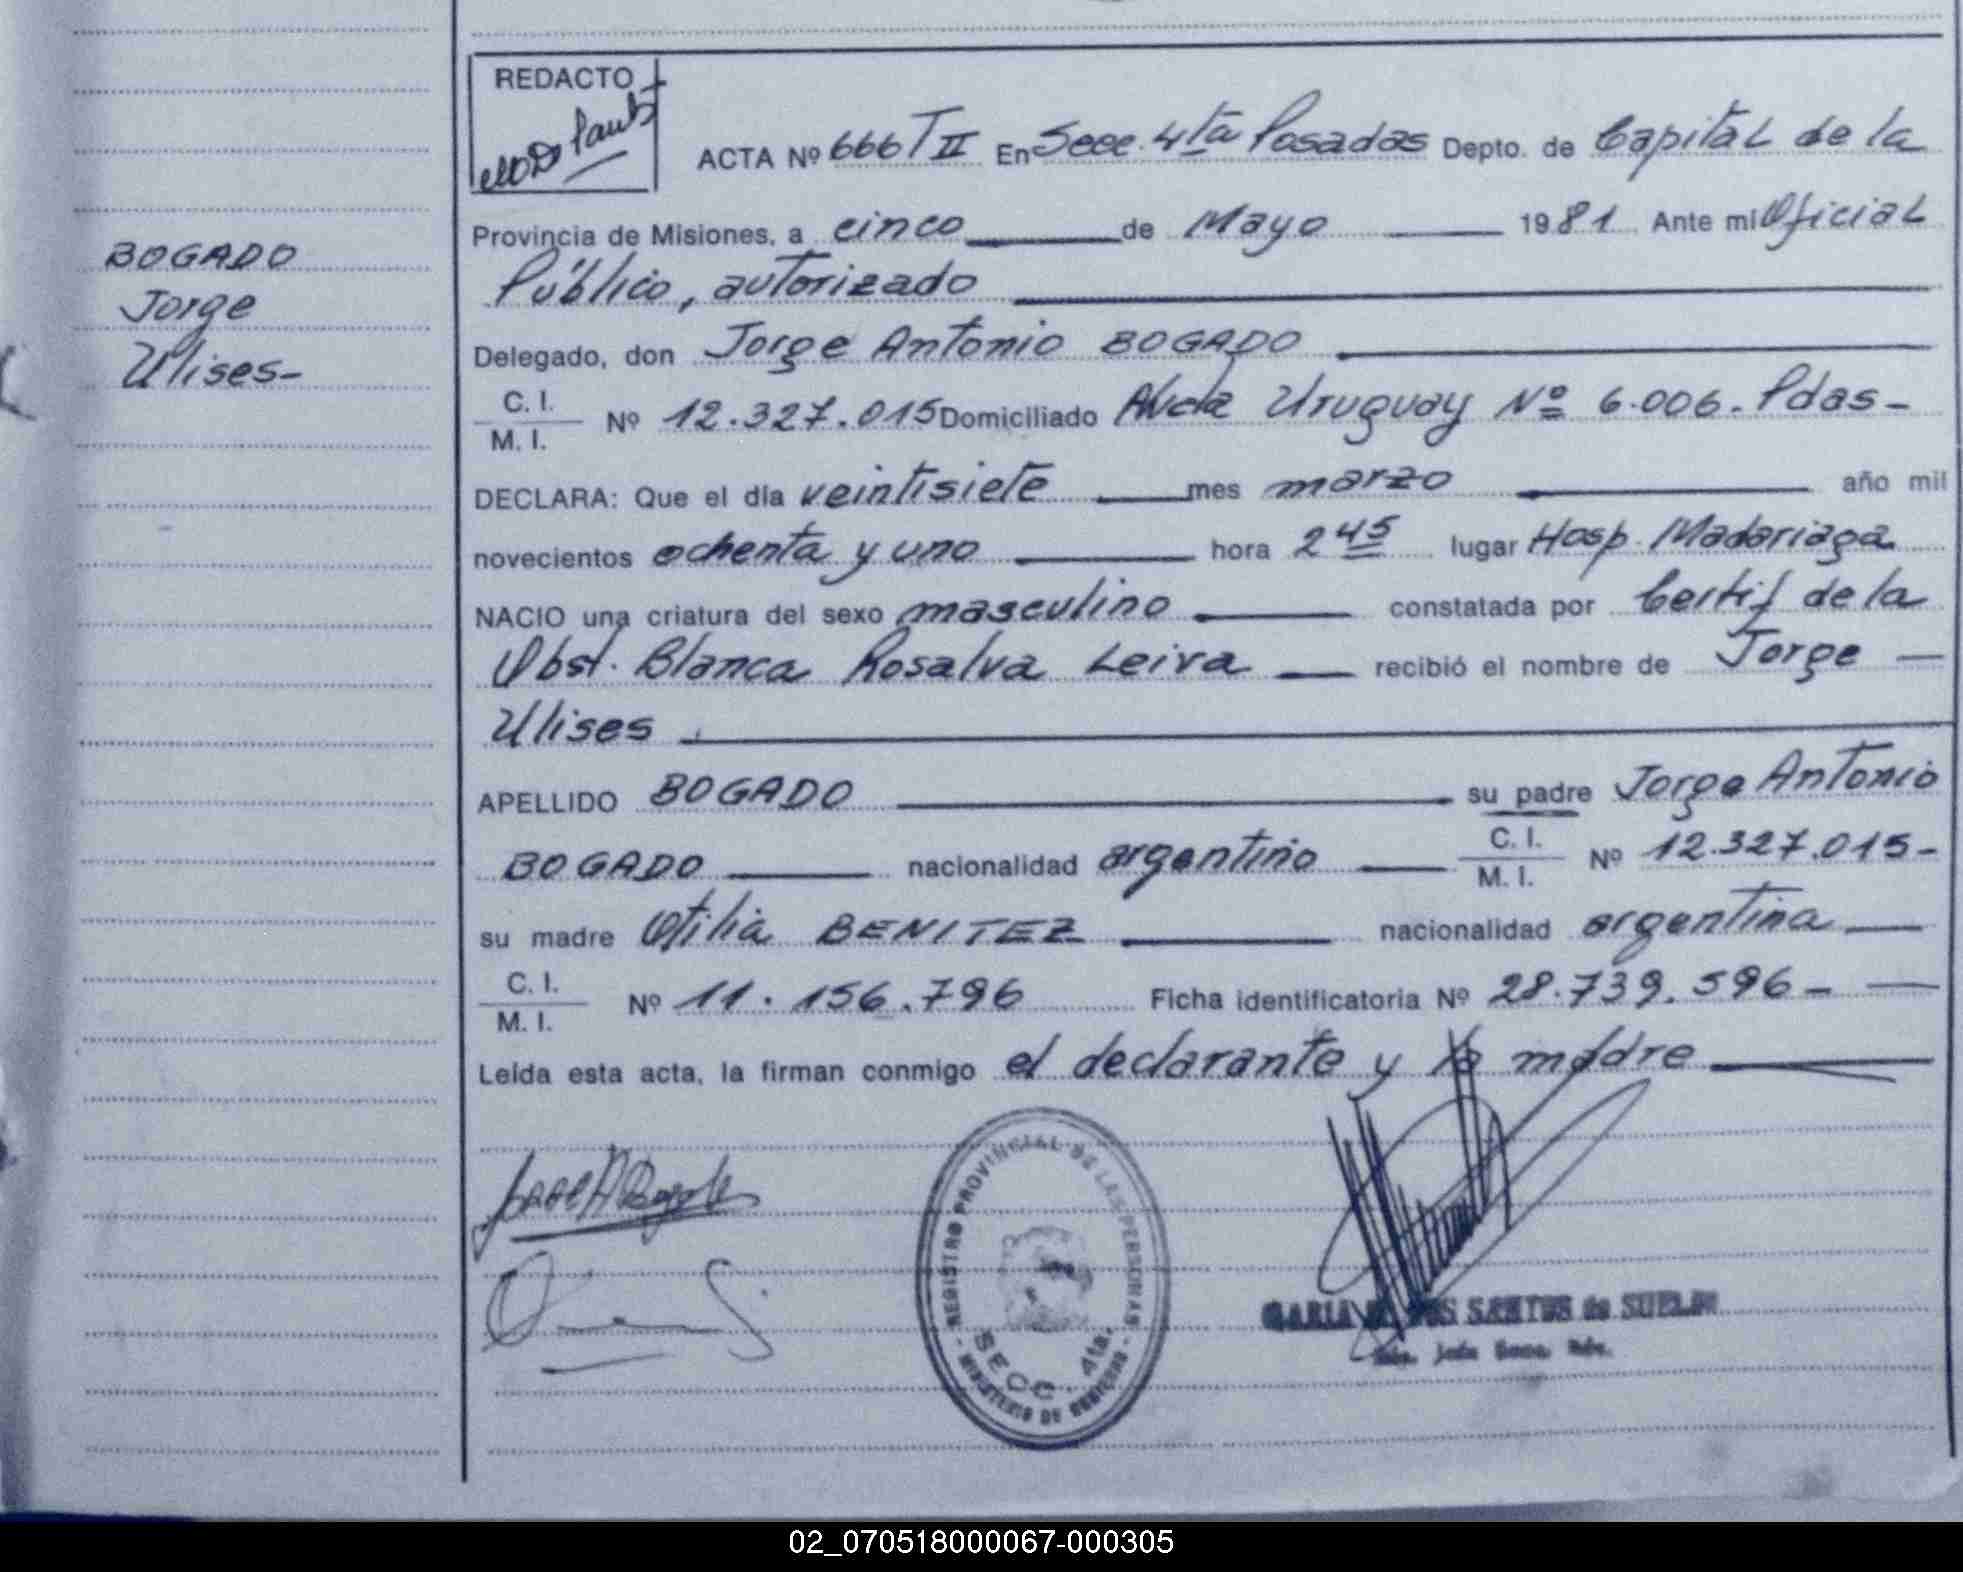 REDACTO
ACTA Nº 666 T II En Secc. 4ta Posadas Depto. de Capital de la
Provincia de Misiones, a cinco de Mayo 1981 Ante mi Oficial
Público, autorizado
Delegado, don Jorge Antonio BOGADO
C. I.
M. I. Nº 12.327.015 Domiciliado Avda Uruguay Nº 6.006. Pdas-
DECLARA: Que el día veintisiete mes marzo año mil
novecientos ochenta y uno hora 2 45 lugar Hosp. Madariaga
NACIO una criatura del sexo masculino constatada por Certif de la
Obst. Blanca Rosalva Leiva recibió el nombre de Jorge
Ulises
APELLIDO BOGADO su padre Jorge Antonio
BOGADO nacionalidad argentino C. I.
M. I. Nº 12.327.015-
su madre Otilia BENITEZ nacionalidad argentina
C. I.
M. I. Nº 11.156.796 Ficha identificatoria Nº 28.739.596-
Leída esta acta, la firman conmigo el declarante y la madre
BOGADO
Jorge
Ulises-
REGISTRO PROVINCIAL DE LAS PERSONAS
SECC. 4ta.
MINISTERIO DE GOBIERNO
SANTOS de SUELDO
02_070518000067-000305